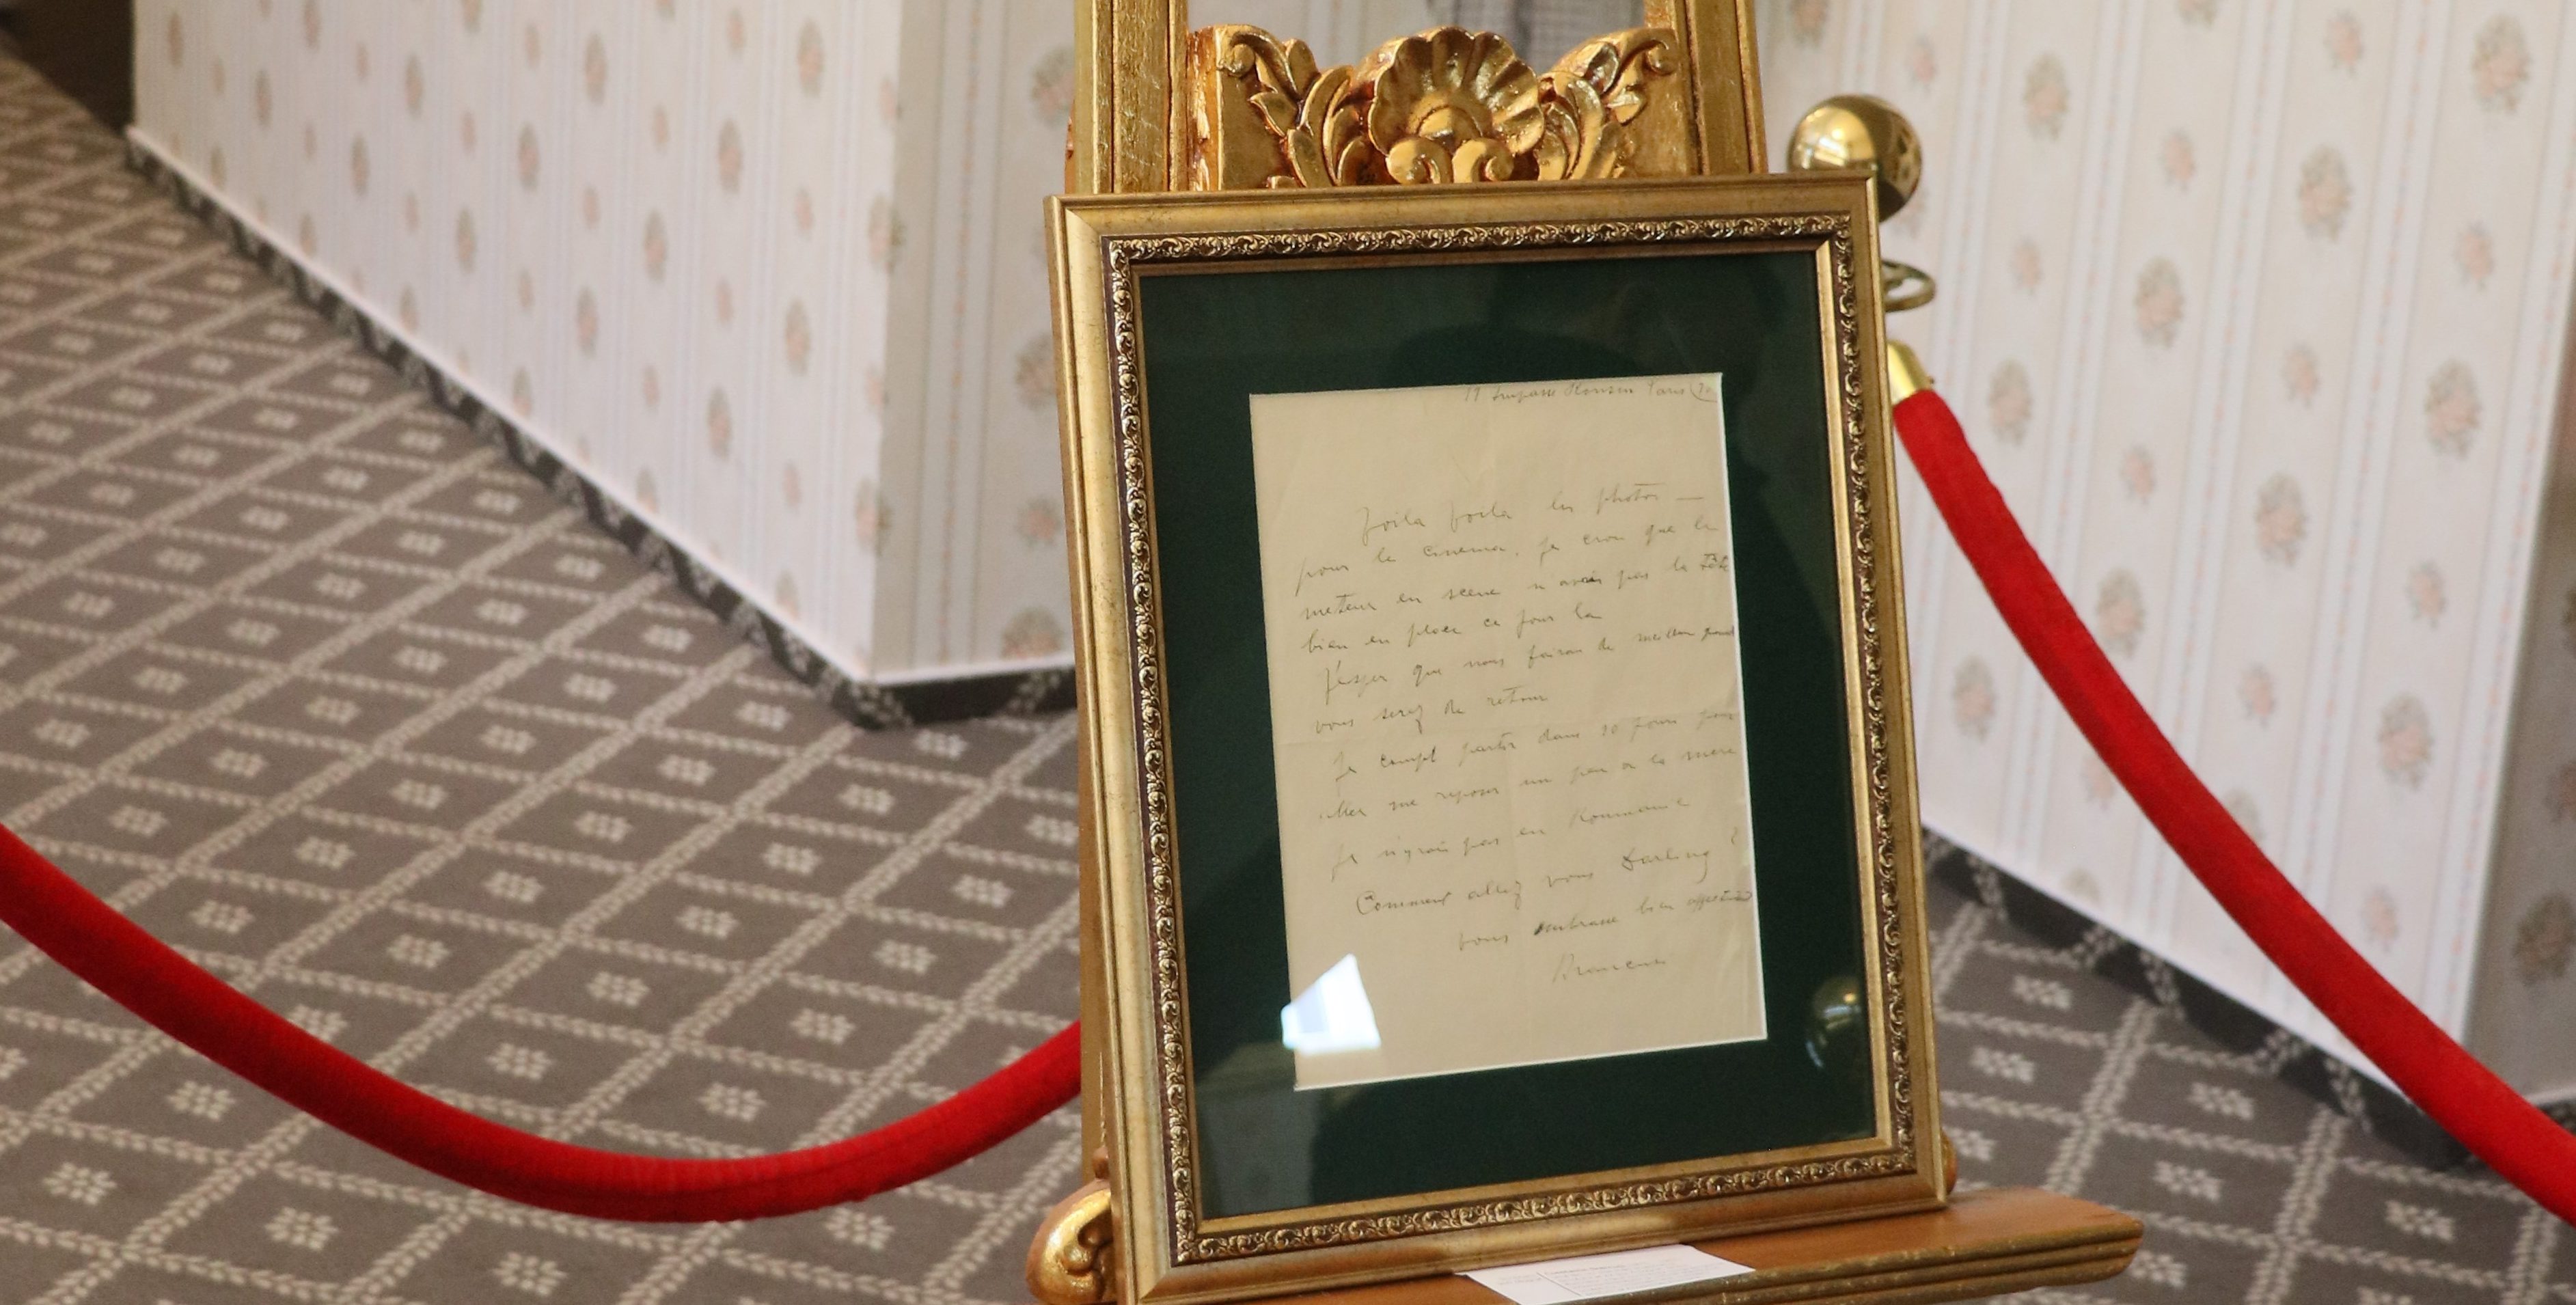 11 Impasse Ronsin Paris (
Voila Voila les photos —
pour le cinema. Je croi que le
meteur en scene n avais pas la tête
bien en place ce jour la
J'esper que nous fairon de meilleur quand
vous serez de retour
Je compt partir dans 10 jours pour
aller me reposer un peu a la mere
Je n'yrais pas en Roumanie
Comment allez vous Darling ?
vous embrasse bien
Brancusi